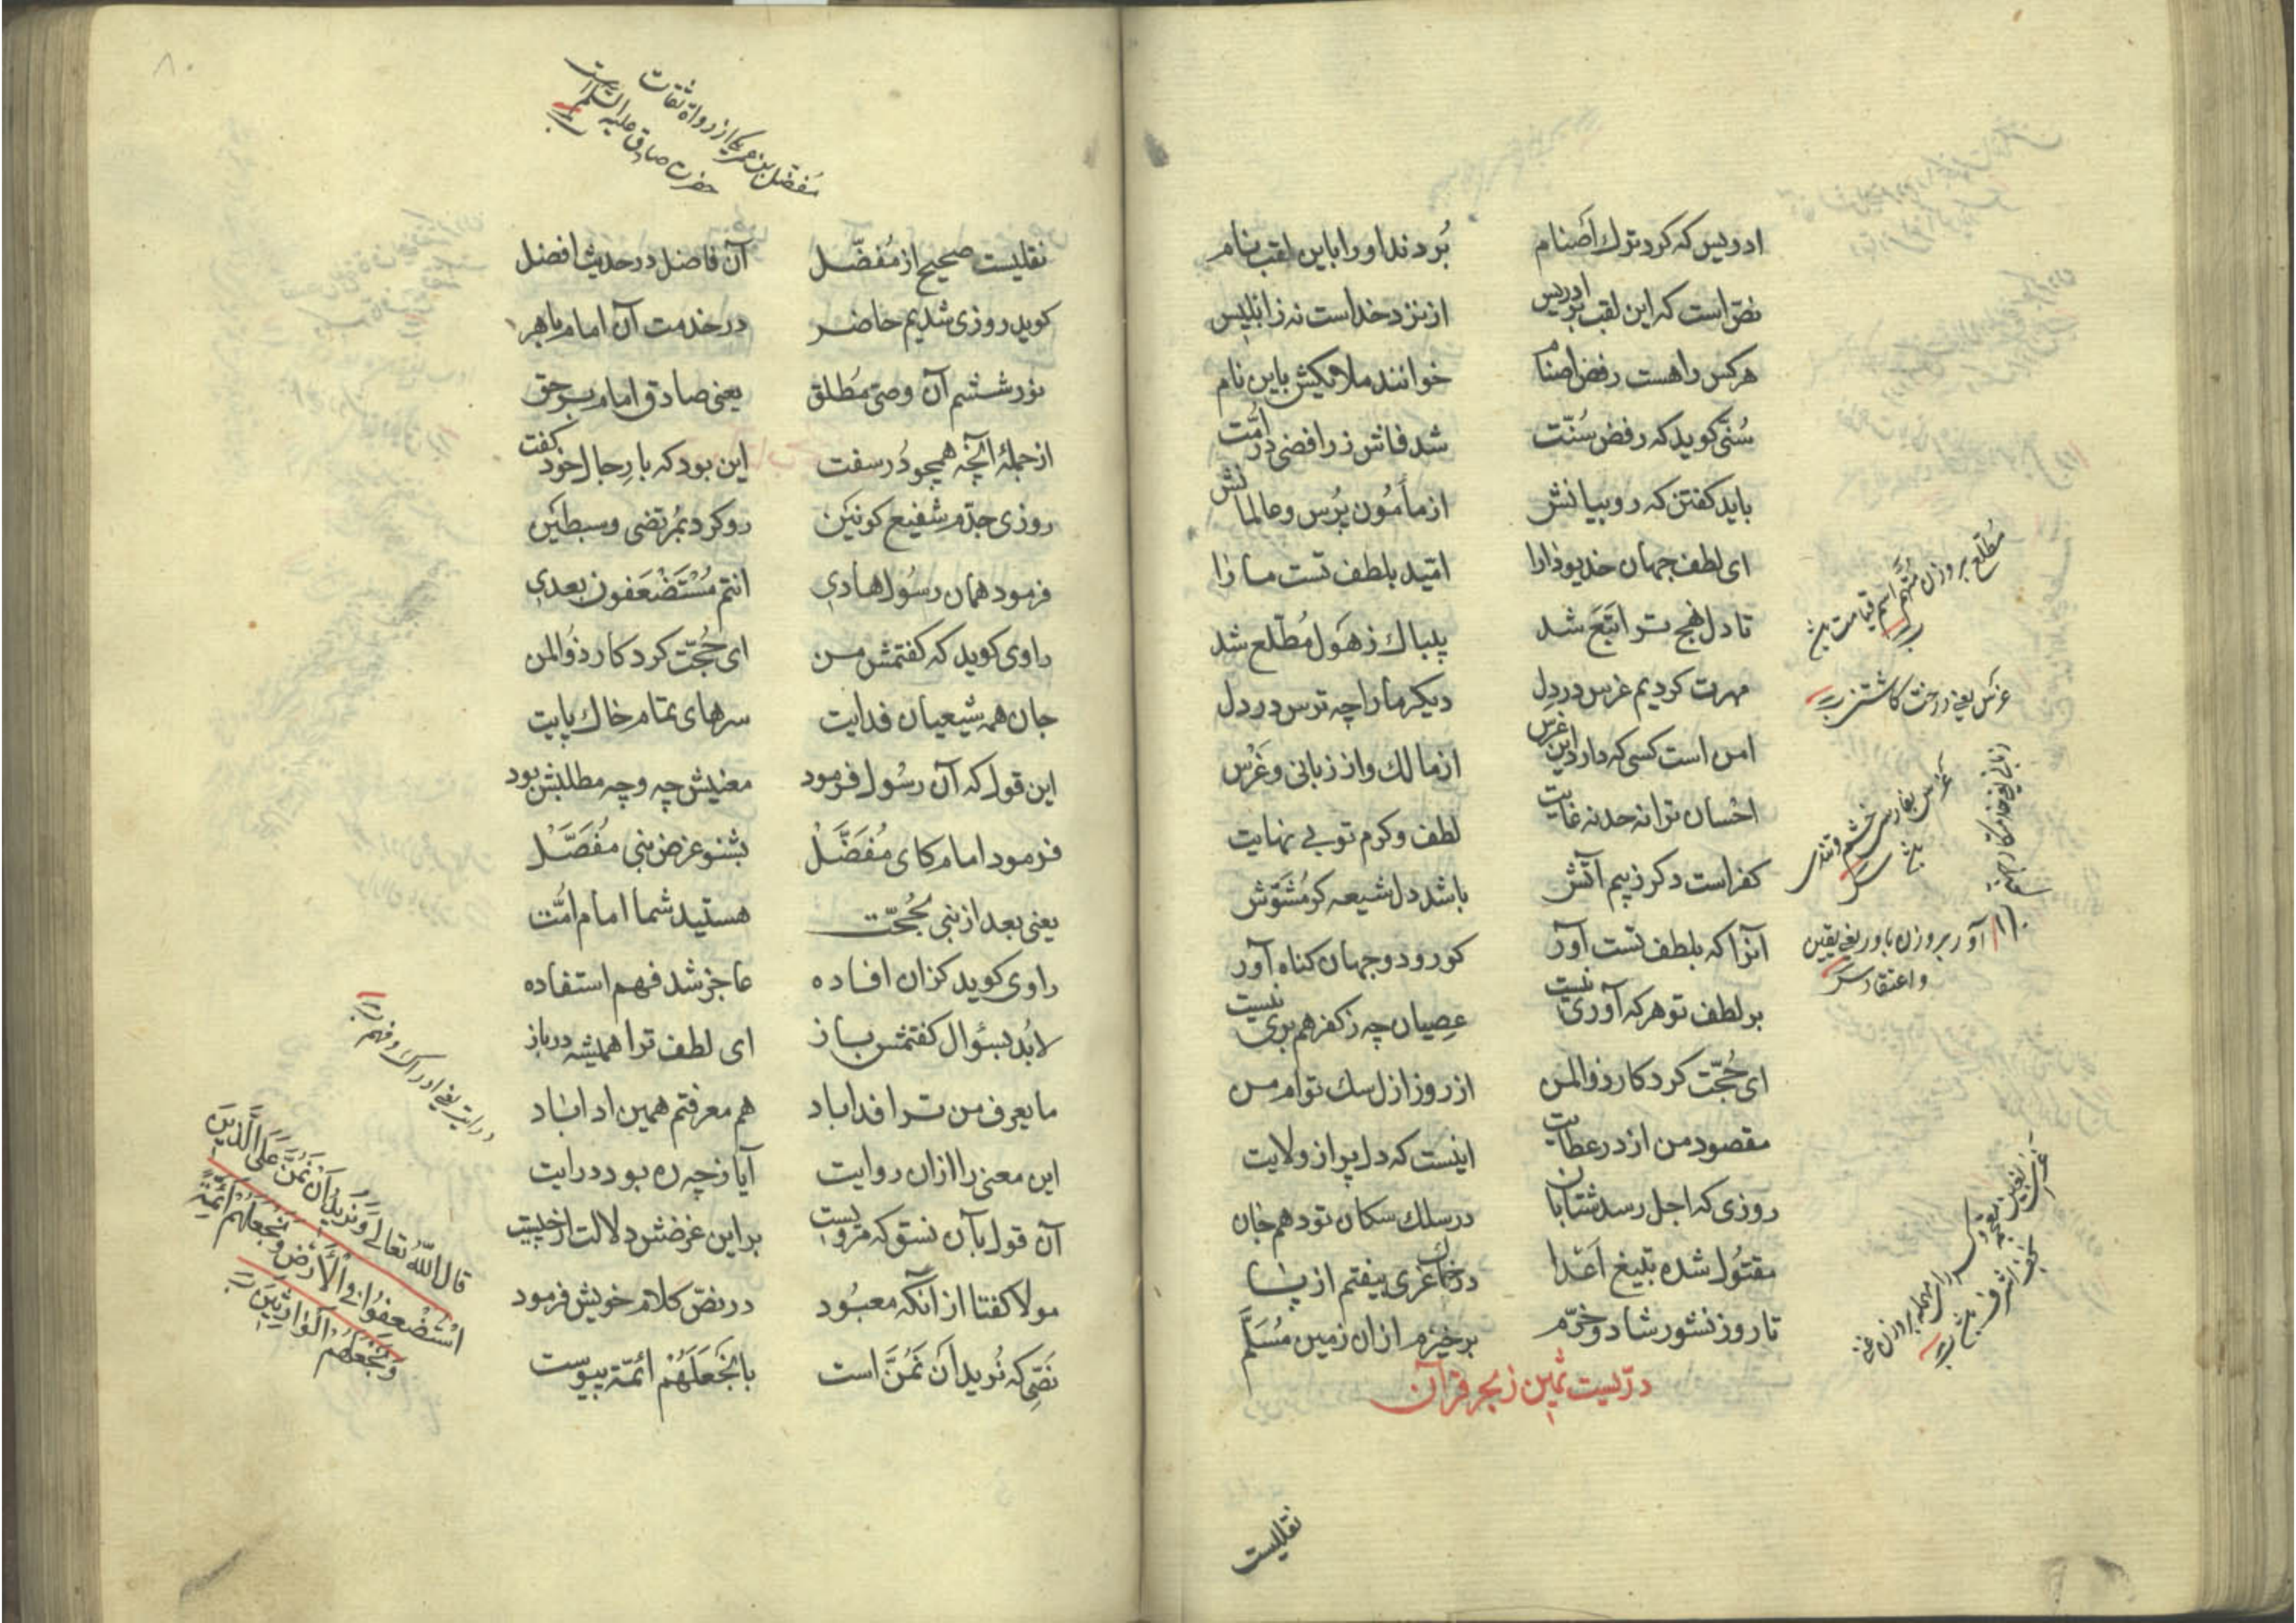 ادریس که کرد ترك أصنام بُردند او را باین لقب نام
نصّ است که این لقب بر ادریس از نزد خداست نه ز ابلیس
هر کس را هست رفض اصنام خوانند ملائکش باین نام
سُنّی کوید که رفض سُنّت شد فاش ز رافضی در امُّت
باید کفتن که رو بیانش از مأمُون پُرس و عالمانش
ای لطف جهان خدیو دارا امّید بلطف تست مارا
تا دل نهج ترا تَبَع شد بیباك ز هَول مُطّلع شد
مهرت کردیم غرس در دل دیکر ما را چه ترس در دل
امن است کسی که دارد این غرس از مالك و از زبانی و غَرْس
احسان ترا نه حد نه غایت لطف و کرم تو بی نهایت
کفر است دکر ز بیم آتش باشد دل شیعه کو مُشَوّش
آنرا که بلطف تست آور کو رو دو جهان کناه آور
بر لطف تو هر که آوری نیست عصیان چه ز کفر هم بری نیست
ای حُجّت کردکار ذو المن از روز ازل سك توام من
مقصود من از در عطایت اینست که دل پر از ولایت
روزی که اجل رسد شتابان در سلك سکان تو دهم جان
مقتُول شده بتیغ اَعْدا در خاك غری بیفتم از پا
تا روز نشور شاد و خرّم برخیزم ازان زمین مُسَلَّم
درّیست ثمین ز بحر قرآن
نقلیست
مُطّلع بر وزن مُتّهم اسم قیامت
غرس یعنی درخت کاشتن
غرس بفارسی خشم و تندی
آور بر وزن باور یعنی یقین
و اعتقاد
۸۰
مُفضّل بن عمر که از رواة ثقات
حضرت صادق علیه السّلام است
نقلیست صحیح از مُفضّل آن فاضل در حدیث افضل
کوید روزی شدیم حاضر در خدمت آن امام باهر
نور ششم آن وصیّ مُطلق یعنی صادق امام بر حق
از جملۀ آنچه همچو دُر سفت این بود که با رِجال خود کفت
روزی جدّم شفیع کونین رو کرد بمُرتضی و سبطین
فرمود همان رسُول هادی انتم مُسْتَضْعَفون بعدی
راوی کوید که کفتمش من ای حُجّت کردکار ذُو المن
جان همه شیعیان فدایت سرهای تمام خاك پایت
این قول که آن رسُول فرمود معنیش چه و چه مطلبش بود
فرمود امام کای مُفَضَّلْ بشنو غرض نبی مُفَصَّلْ
یعنی بعد از نبی بحُجّت هستید شما امام امُّت
راوی کوید کزان افاده عاجز شد فهم استفاده
لابُد بسئوال کفتمش باز ای لطف ترا همیشه در باز
ما یعرف من ترا فدا باد هم معرفتم همین ادا باد
این معنی را ازان روایت آیا ز چه ره بود درایت
آن قول بآن نسق که مرویست بر این غرضش دلالت از چیست
مولا کفتا از آنکه معبُود در نصّ کلام خویش فرمود
نَصّی که نُرید اَن نَمُنَّ است با نَجعَلَهُمْ ائمّة پیوست
درایت یعنی ادراك و فهم
قال اللّه تعالی وَنُریدُ اَنْ نَمُنَّ عَلَی الَّذینَ
اسْتُضْعِفُوا فی الْاَرْضِ وَنَجْعَلَهُمْ اَئِمَّةً
وَنَجْعَلَهُمُ الْوارِثینَ